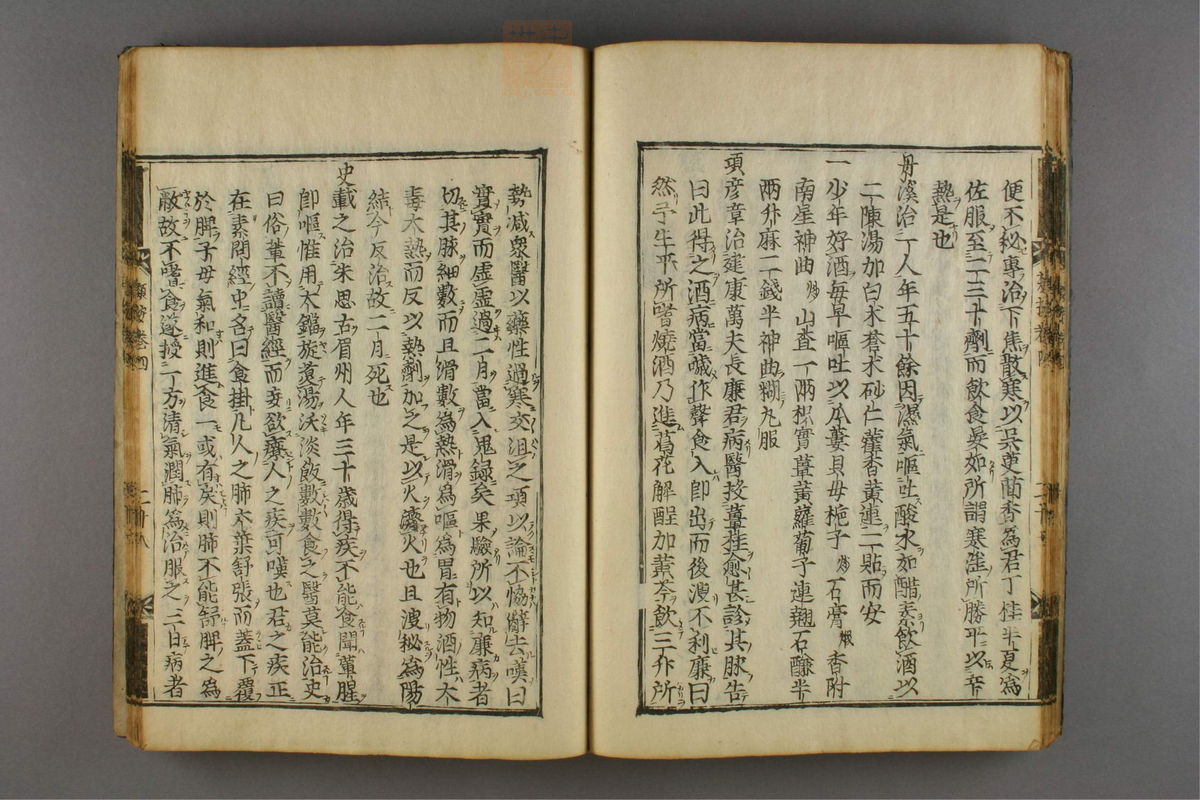 便不秘專治下焦散寒以吳茱萸茴香為君丁桂半夏為
佐服至二三十劑而飲食晏如所謂寒淫所勝平以辛
熱是也
丹溪治一人年五十餘因濕氣嘔吐酸水如醋素飲酒以
二陳湯加白朮蒼朮砂仁藿香黃連二貼而安
一少年好酒每早嘔吐以瓜蔞貝母梔子炒石膏煅香附
南星神曲炒山査一兩枳實薑黃蘿蔔子連翹石鹼半
兩升麻二錢半神曲糊丸服
項彦章治建康萬夫長廉君病醫投薑桂愈甚診其脉告
曰此得之酒病當噦作聲食入即出而後溲不利廉曰
然予生平所嗜燒酒乃進葛花解酲加黃芩飲三升所
勢減衆醫以藥性過寒交沮之項以論不恊辭去嘆曰
實實而虛虛過二月當入鬼録矣果驗所以知廉病者
切其脉細數而且滑數為熱滑為嘔為胃有物酒性大
毒大熱而反以熱劑加之是以火濟火也且溲秘為陽
結今反治故二月死也
史載之治朱思古眉州人年三十歲得疾不能食聞葷腥
即嘔惟用大鐺旋煑湯沃淡飯數數食之醫莫能治史
曰俗輩不讀醫經而妄欲療人之疾可嘆也君之疾正
在素問經中名曰食掛凡人之肺六葉舒張而蓋下覆
於脾子母氣和則進食一或有戾則肺不能舒脾之為
敝故不嗜食遂授一方清氣潤肺為治服之三日病者
卷四
二十八